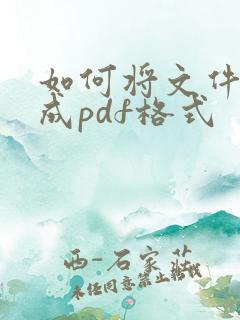 如何将文件
成pdf格式
西-石家花
未经同意禁止转载